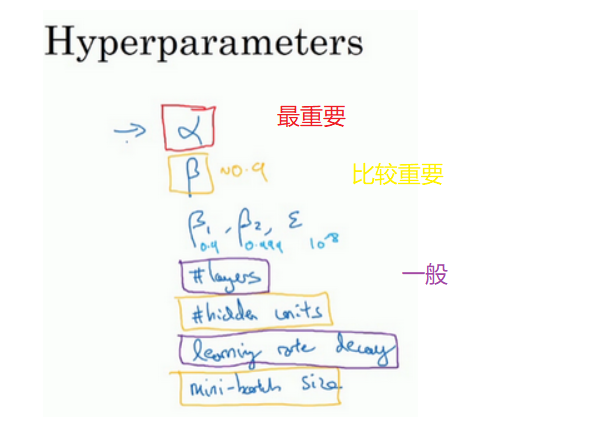 Hyperparameters
→ α 最重要
β ~0.9 比较重要
β₁, β₂, ε
0.9 0.999 10⁻⁸
#layers 一般
#hidden units
learning rate decay
mini-batch size